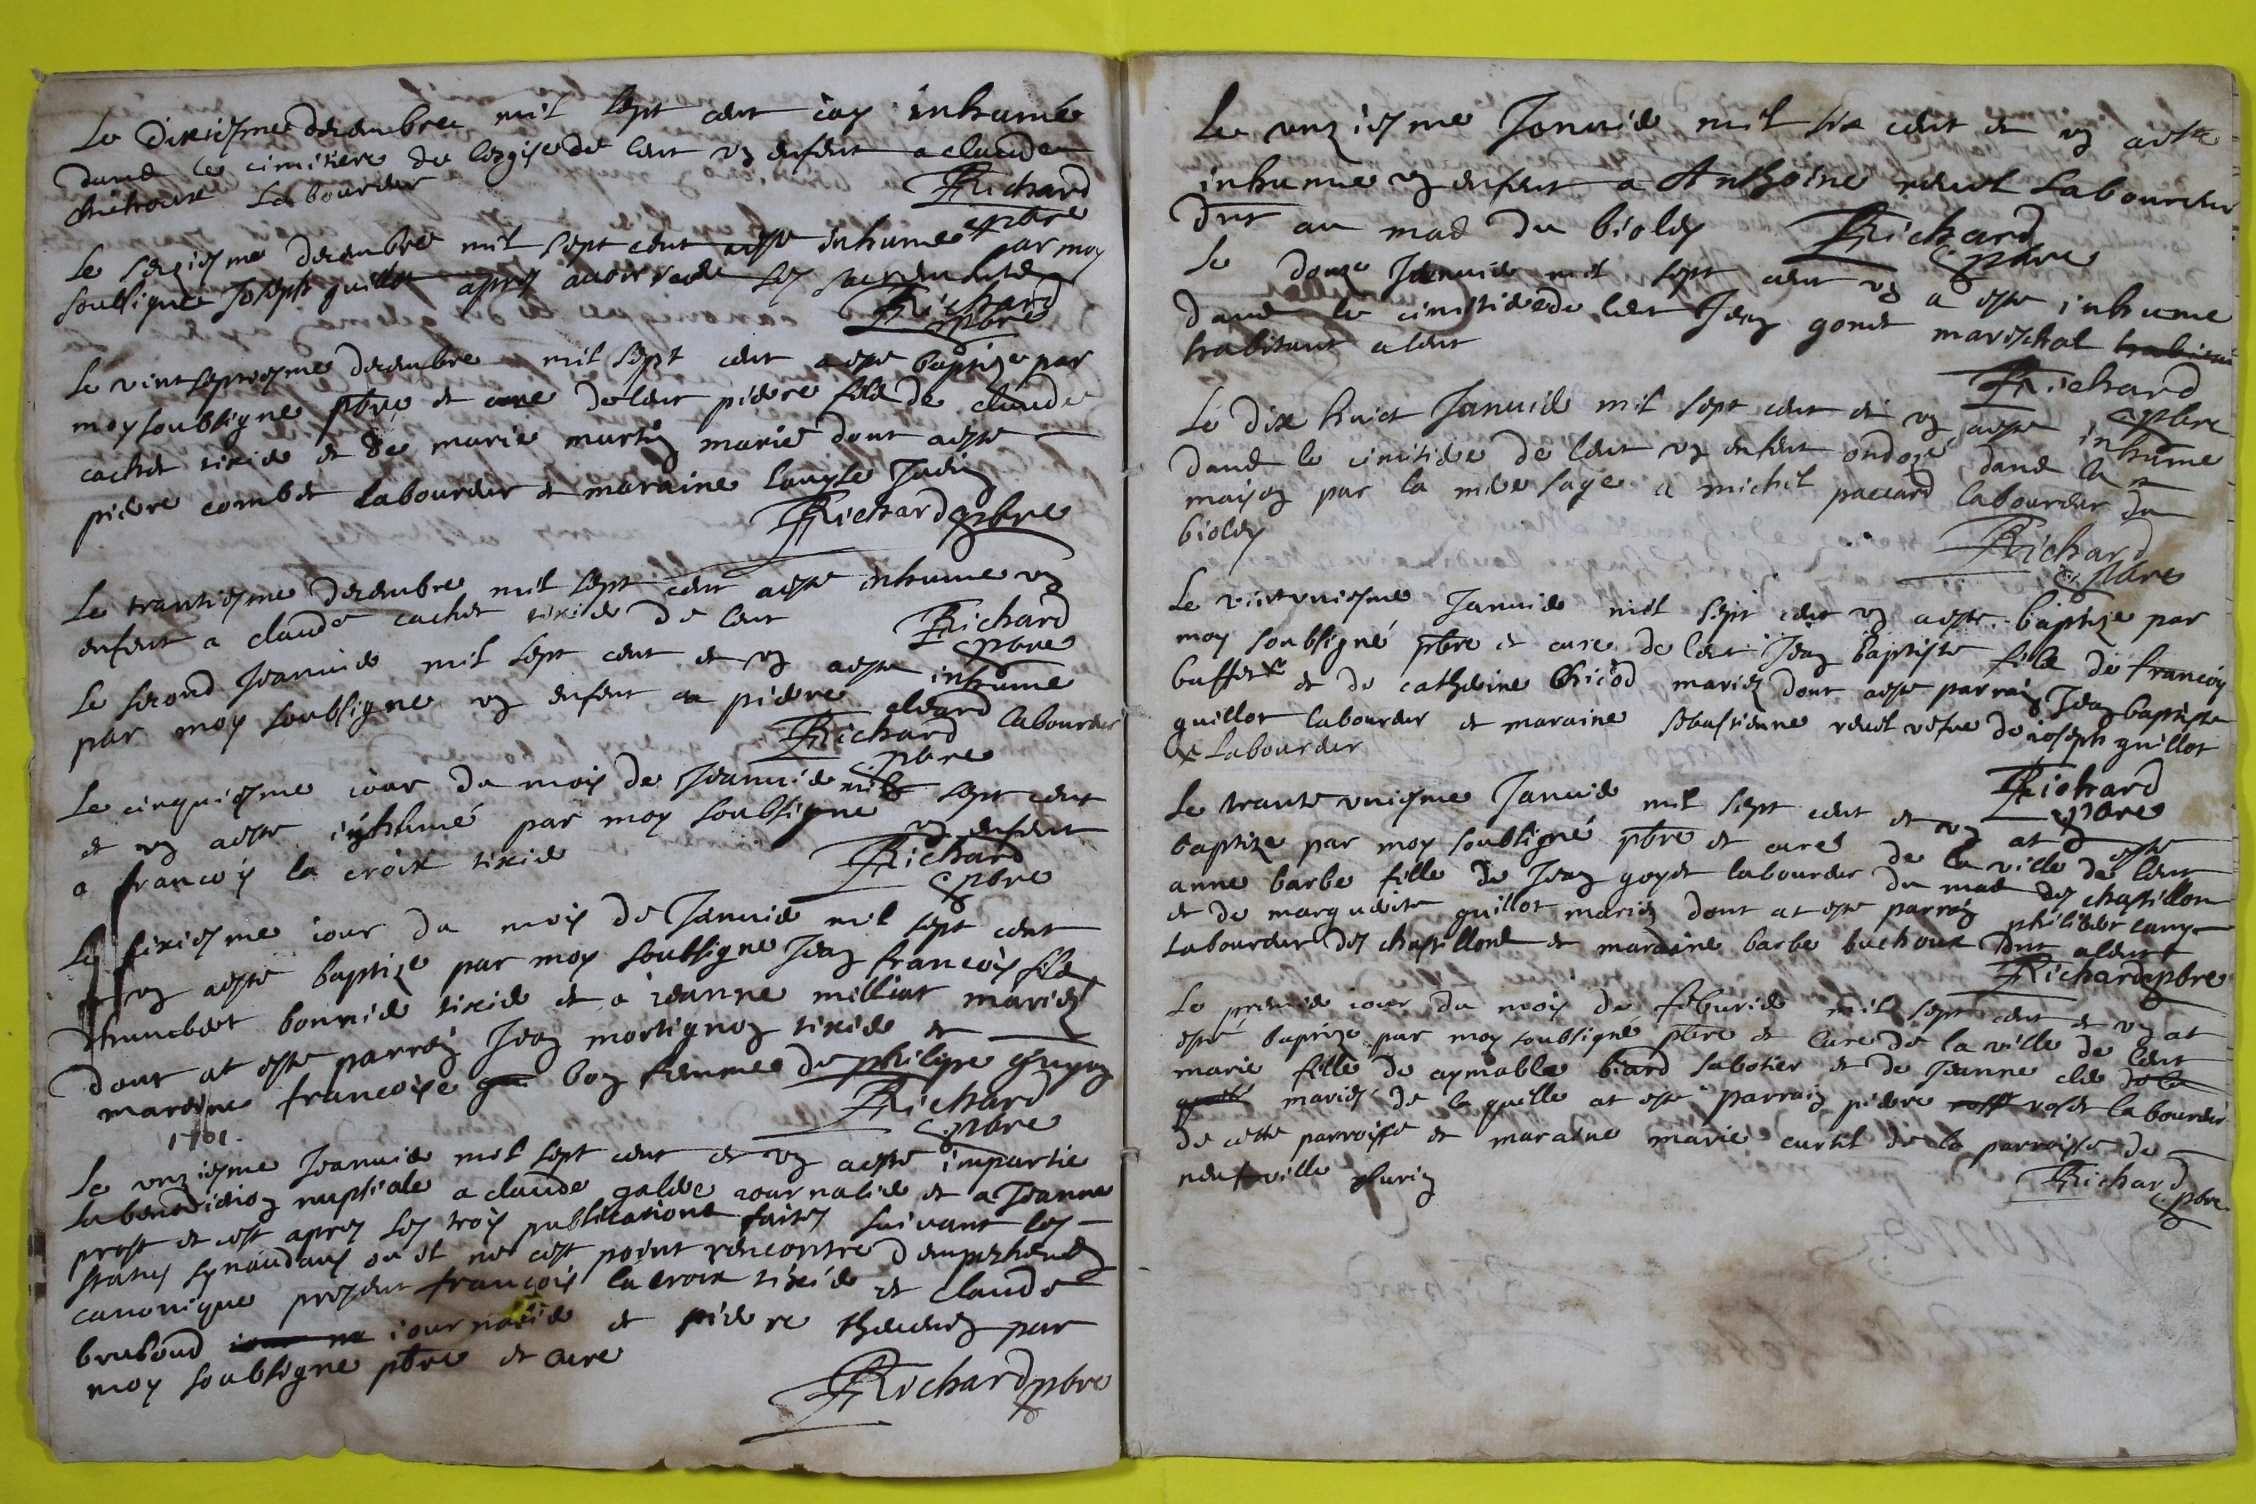 Le dixiesme decembre mil sept cent iay inhumé
dans le cimitiere de lesglise de Cent un enfent a claude
laboureur
Richard
pbre
Le sexiesme decembre mil sept cent aeste inhume par moy
soubsigne Joseph guillot apres avoir receu les sacrements
Richard
pbre
Le vint septiesme decembre mil sept cent aeste baptize par
moy soubsigne pbre et cure de Cent piere fils de claude
cachet tixie et de marie martin marie dont aeste
piere combet laboureur et maraine
Richard pbre
Le trantiesme decembre mil sept cent aeste inhume un
enfent a claude cachet tixie de Cent
Richard
pbre
Le second Jeanvie mil sept cent et un aeste inhume
par moy soubsigne un enfent a piere laboureur
Richard
pbre
Le cinquiesme iour du mois de Jeanvie mil sept cent
et un aeste inhumé par moy soubsigne un enfent
a francois la croix tixie
Richard
pbre
Le sixiesme iour du mois de Janvie mil sept cent
et un aeste baptize par moy soubsigne Jean francois fils
dhumbert bonvie tixie et a ieanne milliat mariez
dont at este parrain Jean mortignon tixie et
maraine francoise bon femme de philipe guyon
Richard
pbre
1701.
Le unziesme Jeanvie mil sept cent et un aeste impartie
la benediction nuptiale a claude galee iournalie et a Jeanne
prost et cest apres les trois publications faites suivant les
status synaudaux ou il ne cest point rencontre dempeschement
canonique present francois la croix tixie et claude
brebond iournalie et piere par
moy soubsigne pbre et cure
Richard pbre
Le unziesme Janvie mil six cent et un aeste
inhume un enfent a Anthoine revel laboureur
dit au mas du bioley
Richard
pbre
Le douze Jeanvie mil sept cent un a este inhume
dans le cimitiere de Cent Jean gonet marischal
habitant a Cent
Richard
pbre
Le dix huict Janvie mil sept cent et un aeste inhume
dans le cimitiere de Cent un enfent ondoyé dans la
maison par la mere sage a michel paccard laboureur du
bioley
Richard
pbre
Le vint uniesme Janvie mil sept cent un aeste baptize par
moy soubsigné pbre et cure de Cent Jean baptiste fils de francois
buffet et de catherine Chicod mariez dont aeste parrain Jean baptiste
guillot laboureur et maraine sebastienne revel vefve de ioseph guillot
laboureur
Richard
pbre
Le trante uniesme Janvie mil sept cent et un at este
baptize par moy soubsigné pbre et curé de la ville de Cent
anne barbe fille de Jean goyet laboureur du mas des chastillons
et de marguerite guillot mariez dont at este parrain philiber
laboureur des chastillons et maraine barbe buchoux dit a Cent
Richard pbre
Le premie iour du mois de feburie mil sept cent et un at
esté baptize par moy soubsigné pbre et Cure de la ville de Cent
marie fille de aymable biard sabotier et de Jeanne
mariez de la quelle at esté parrain piere rosset laboureur
de cette parroisse et maraine marie curtil de la parroisse de
neufville
Richard
pbre